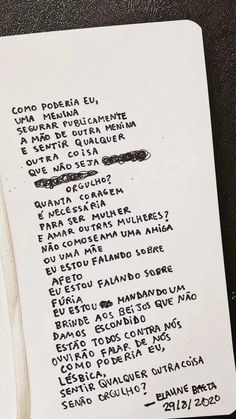 COMO PODERIA EU,
UMA MENINA
SEGURAR PUBLICAMENTE
A MÃO DE OUTRA MENINA
E SENTIR QUALQUER
OUTRA COISA
QUE NÃO SEJA
ORGULHO?
QUANTA CORAGEM
É NECESSÁRIA
PARA SER MULHER
E AMAR OUTRAS MULHERES?
NÃO COMO SE AMA UMA AMIGA
OU UMA MÃE
EU ESTOU FALANDO SOBRE
AFETO
EU ESTOU FALANDO SOBRE
FÚRIA
EU ESTOU MANDANDO UM
BRINDE AOS BEIJOS QUE NÃO
DAMOS ESCONDIDO
ESTÃO TODOS CONTRA NÓS
OUVIRÃO FALAR DE NÓS
COMO PODERIA EU,
LÉSBICA,
SENTIR QUALQUER OUTRA COISA
SENÃO ORGULHO?
— ELAYNE BAETA
29/8/2020